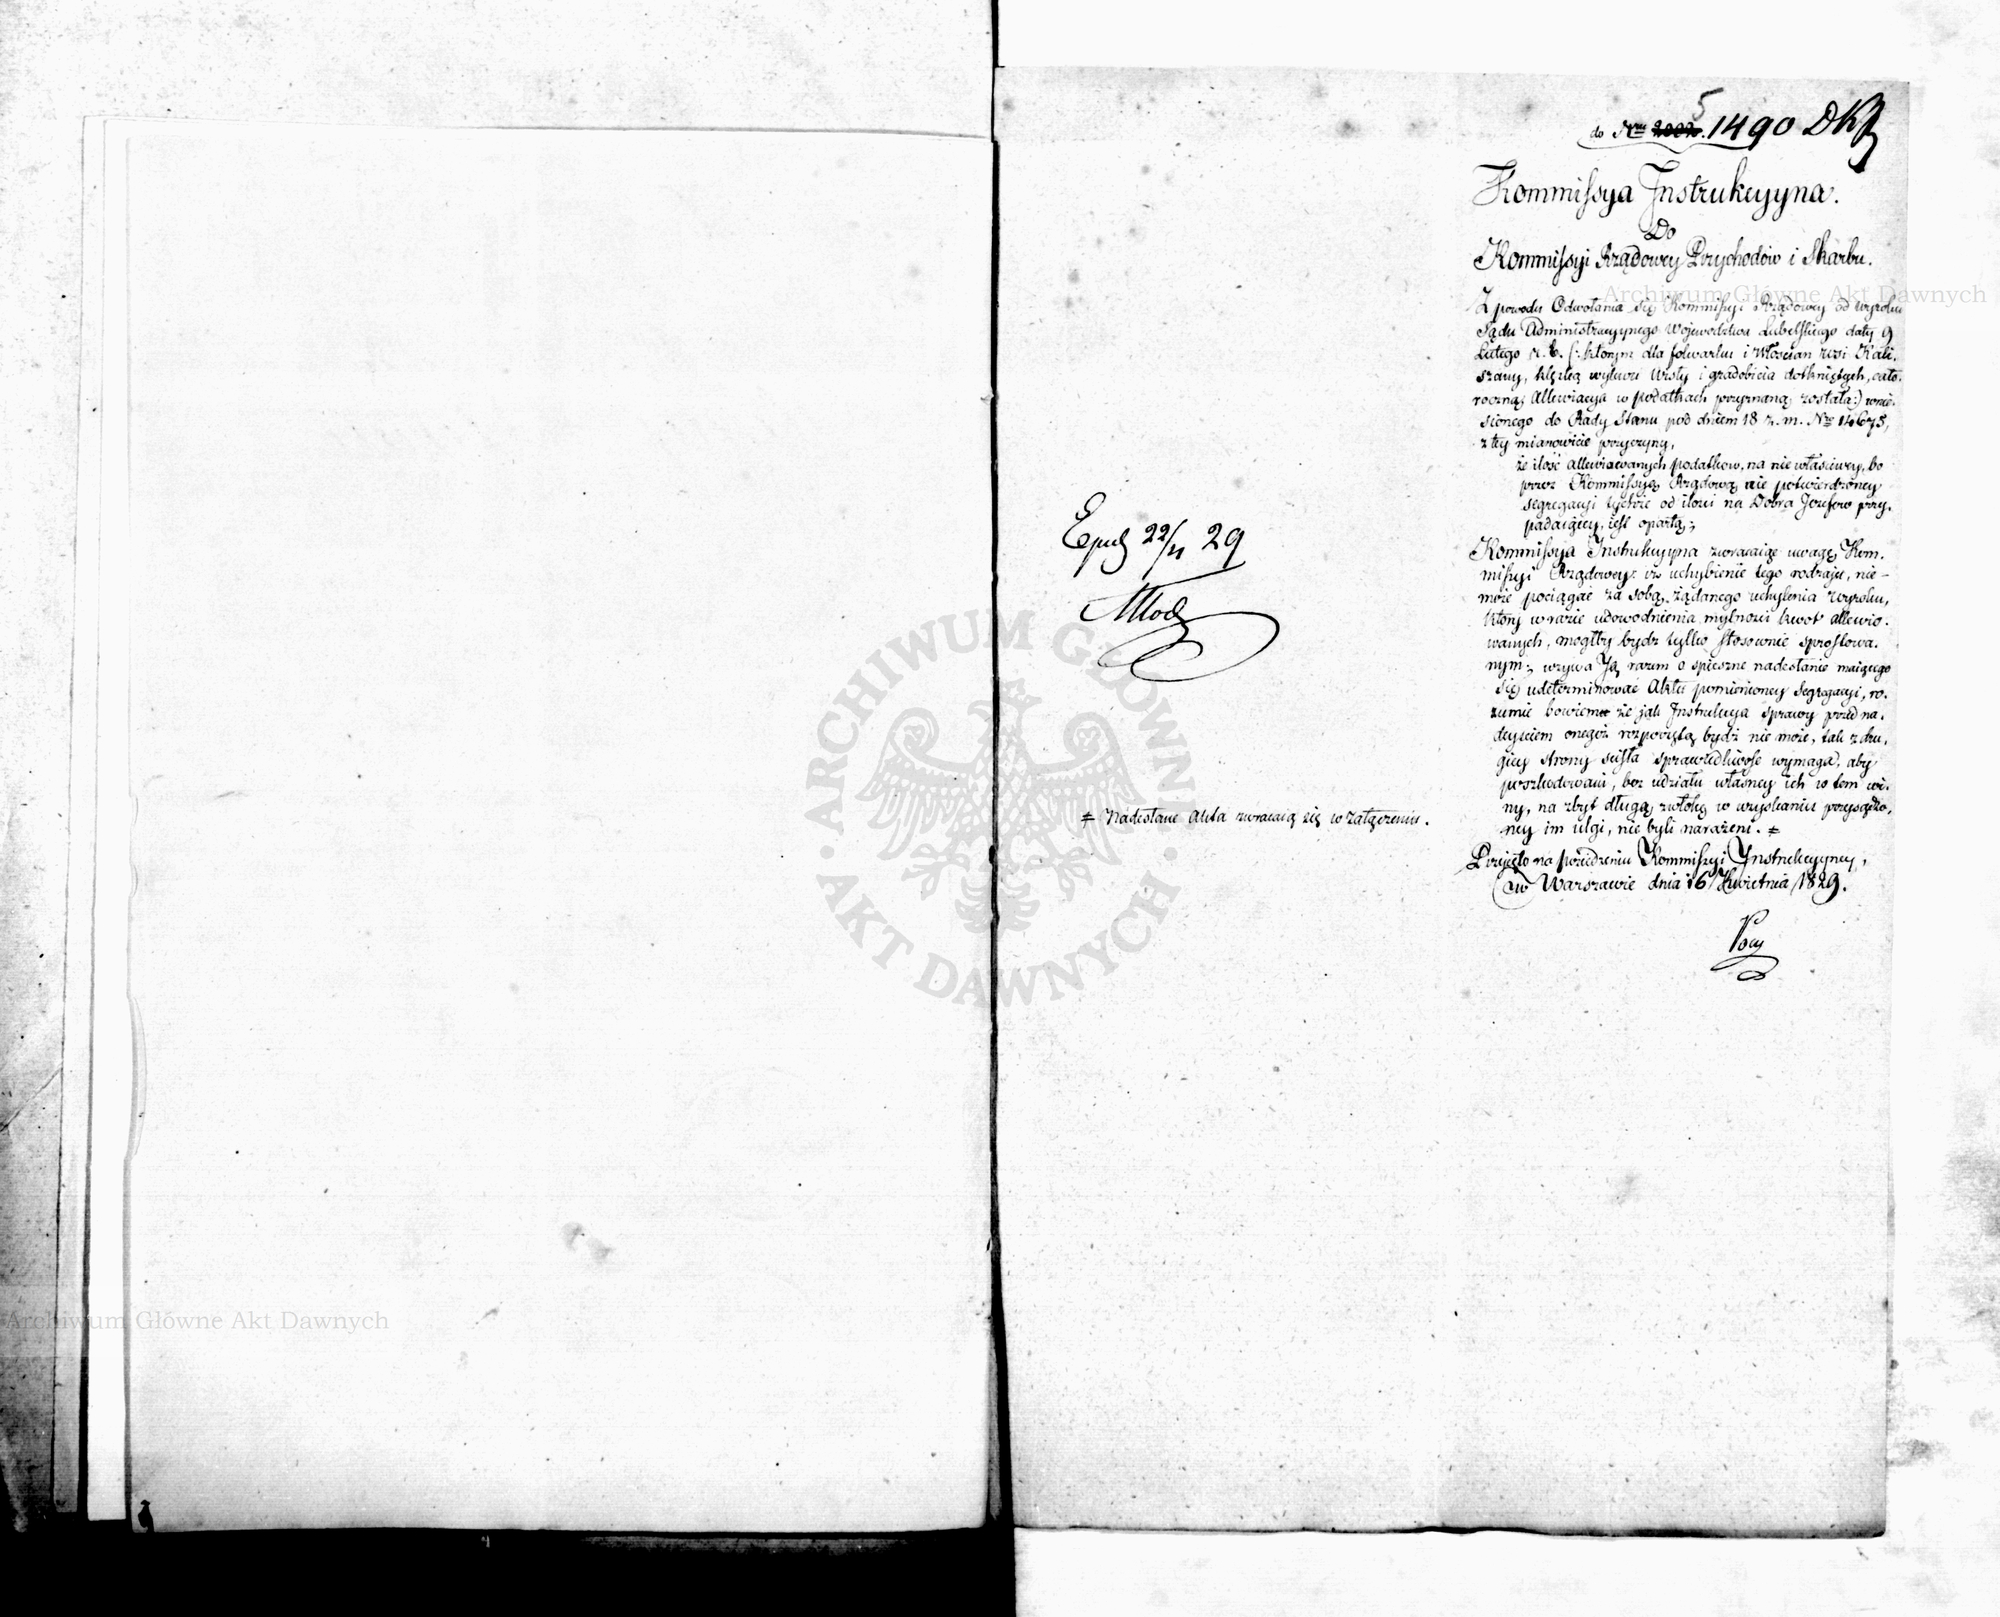 5
do Nru 2002. 1490 DKP
Kommissya Instrukcyyna.
Do
Kommissyi Rządowey Przychodów i Skarbu.
Z powodu Odwołania się Kommissyi Rządowey od wyroku
Sądu Administracyynego Województwa Lubelskiego daty 9
Lutego r. b. (: którym dla folwarku i Włościan wsi Kali-
szany, klęską wylewu Wisły i gradobicia dotkniętych, cało-
roczną Allewiacya w podatkach przyznaną została :) wnie-
sionego do Rady Stanu pod dniem 18 z. m. Nro 14675,
z tey mianowicie przyczyny,
że ilość allewiowanych podatkow, na nie właściwey, bo
przez Kommissyą Rządową nie potwierdzoney
segregacyi tychże od ilości na Dobra Jozefow przy-
padaiącey, iest opartą;
Kommissya Instrukcyyna zwracaiąc uwagę Kom-
missyi Rządowey: iż uchybienie tego rodzaju, nie-
może pociągać za sobą żądanego uchylenia wyroku,
który w razie udowodnienia mylności kwot allewio-
wanych, mogłby bydz tylko stosownie sprostowa-
nym; wzywa Ją razem o spieszne nadesłanie maiącego
się udeterminować Aktu pomienioney segregacyi, ro-
zumie bowiem że jak Instrukcya sprawy przed na-
deyściem onegoż rozpoczętą bydź nie może, tak z dru-
giey strony ścisła sprawiedliwość wymaga, aby
poszkodowani, bez udziału własney ich w tem wi-
ny, na zbyt długą zwłokę w uzyskaniu przysądzo-
ney im ulgi, nie byli narażeni. ≠
Przyjęto na posiedzeniu Kommissyi Instrukcyyney,
w Warszawie dnia 16 Kwietnia 1829.
Exped 22/ 29
≠ Nadesłane Akta zwracaią się w załączeniu.
ARCHIWUM GŁÓWNE
AKT DAWNYCH
Archiwum Główne Akt Dawnych
Archiwum Główne Akt Dawnych